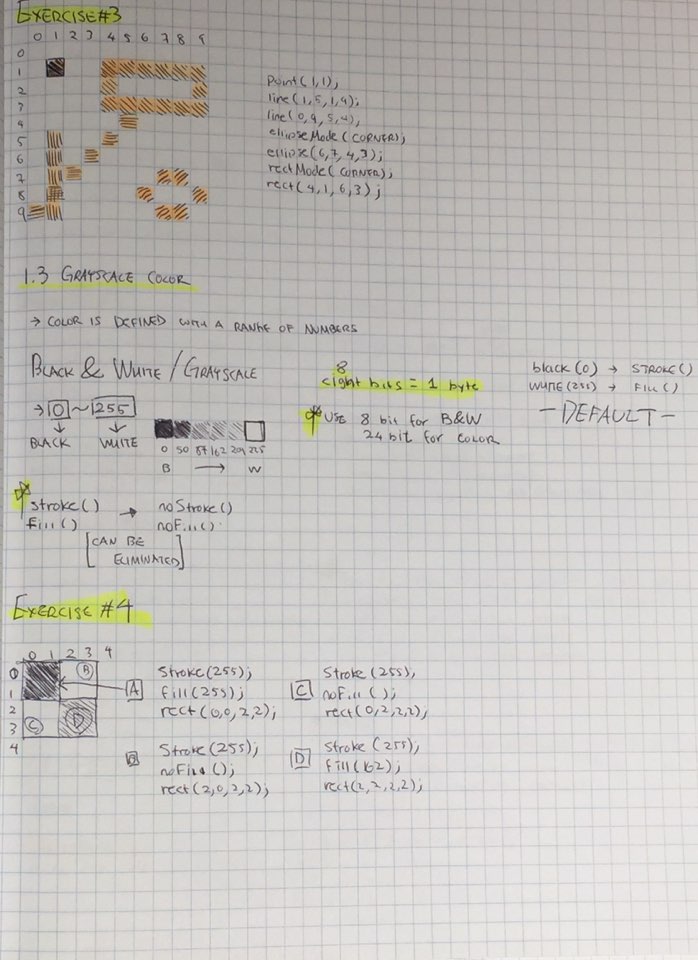 EXERCISE #3
0 1 2 3 4 5 6 7 8 9
0
1
2
3
4
5
6
7
8
9
Point(1,1);
line(1,5,1,9);
line(0,9,5,4);
ellipseMode(CORNER);
ellipse(6,7,4,3);
rectMode(CORNER);
rect(4,1,6,3);
1.3 GRAYSCALE COLOR
→ COLOR IS DEFINED WITH A RANGE OF NUMBERS
BLACK & WHITE / GRAYSCALE
→ 0 ~ 255
BLACK WHITE
0 50 87 162 209 225
B → W
8
eight bits = 1 byte
* USE 8 bit for B&W
24 bit for COLOR
black (0) → STROKE()
WHITE (255) → FILL()
— DEFAULT —
* stroke() → noStroke()
fill() noFill()
[CAN BE
ELIMINATED]
EXERCISE #4
0 1 2 3 4
0
1
2
3
4
B
C
D
A
Stroke(255);
fill(255);
rect(0,0,2,2);
C
Stroke(255),
noFill();
rect(0,2,2,2);
B
Stroke(255);
noFill();
rect(2,0,2,2);
D
stroke(255);
fill(162);
rect(2,2,2,2);